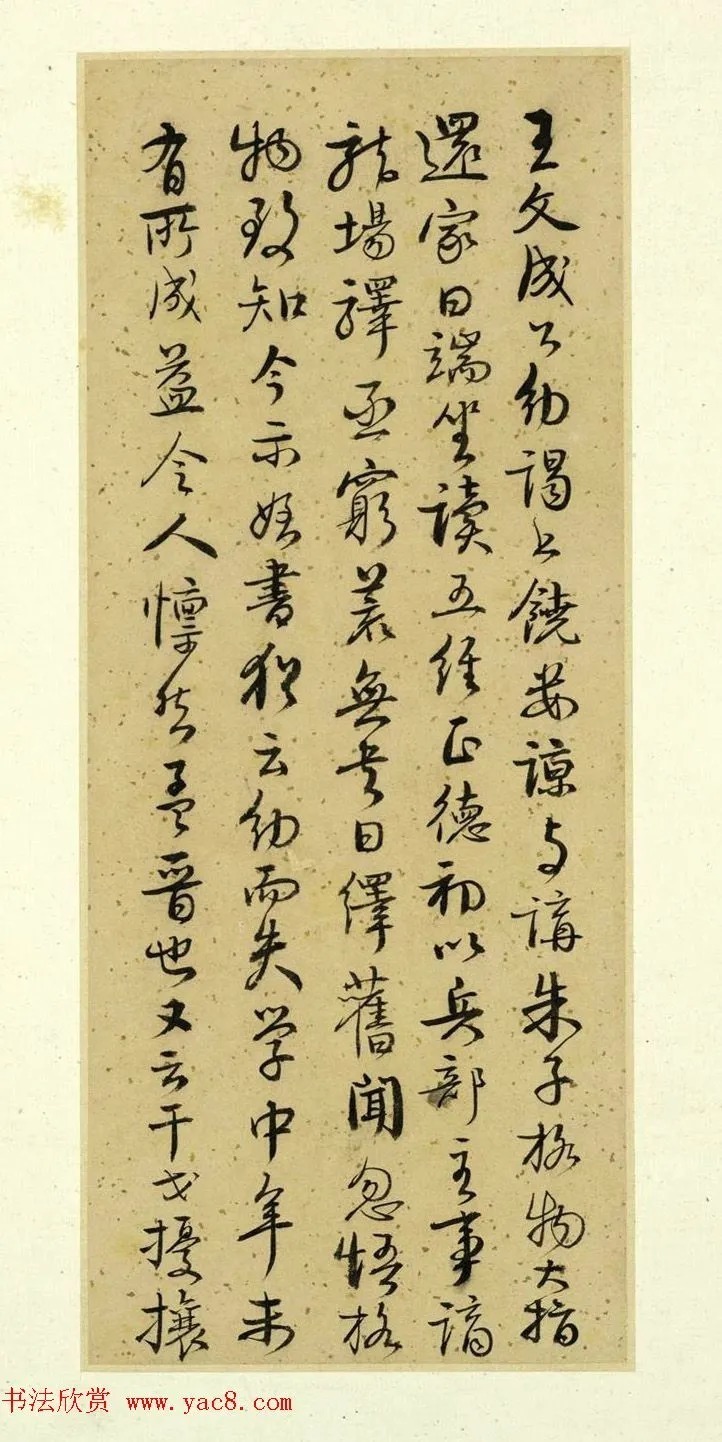 王文成公幼謁上饒婁諒与講朱子格物大指
還家日端坐讀五經正德初以兵部主事謫
龍場驛丞窮荒無書日繹舊聞忽悟格
物致知今示姪書猶云幼而失學中年未
有所成益令人懔然孟晉也又云干戈擾攘
书法欣赏 www.yac8.com